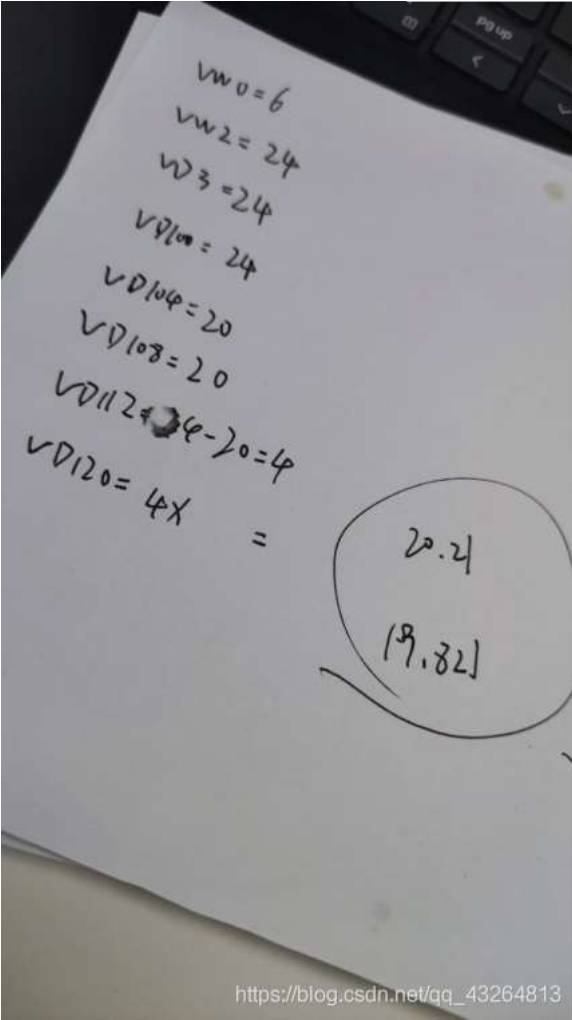 pg up
VW0=6
VW2=24
VD3=24
VD100=24
VD104=20
VD108=20
VD112= 24-20=4
VD120= 4X =
20.21
19.821
https://blog.csdn.net/qq_43264813